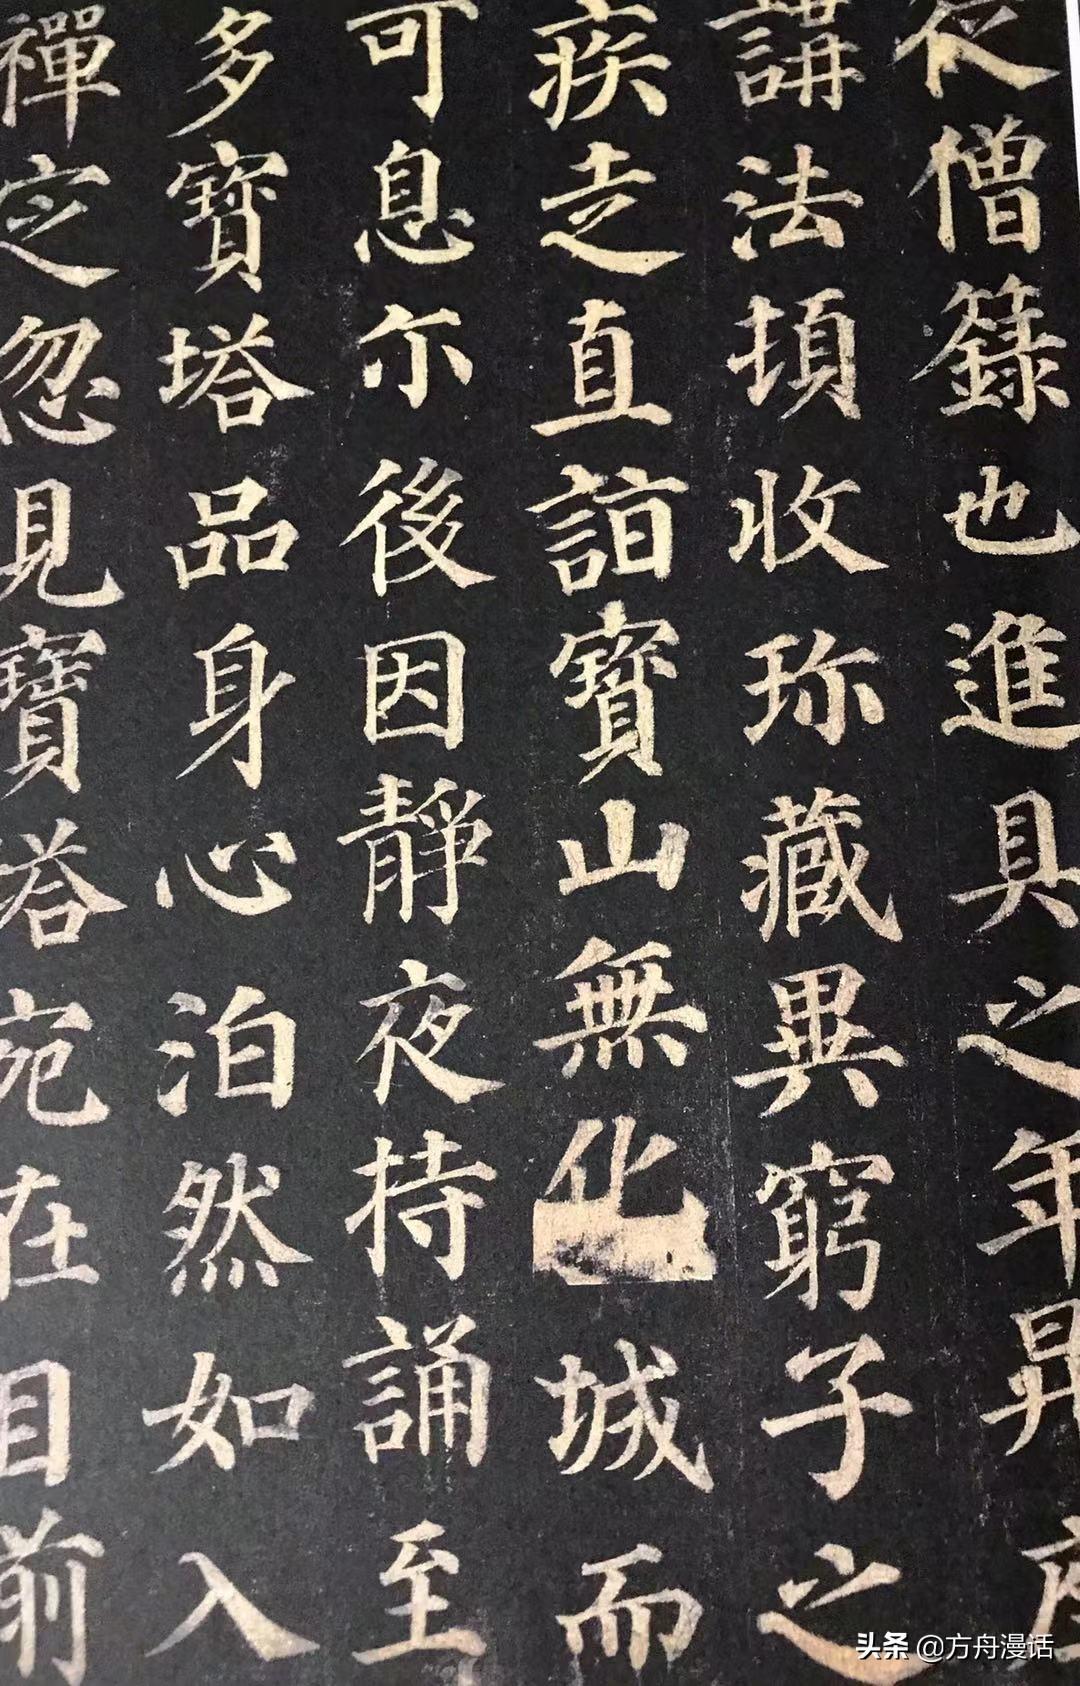 從僧籙也進具之年昇座
講法頓收珎藏異窮子之
疾走直詣寶山無化城而
可息尒後因靜夜持誦至
多寶塔品身心泊然如入
禪定忽見寶塔宛在目前
头条 @方舟漫话